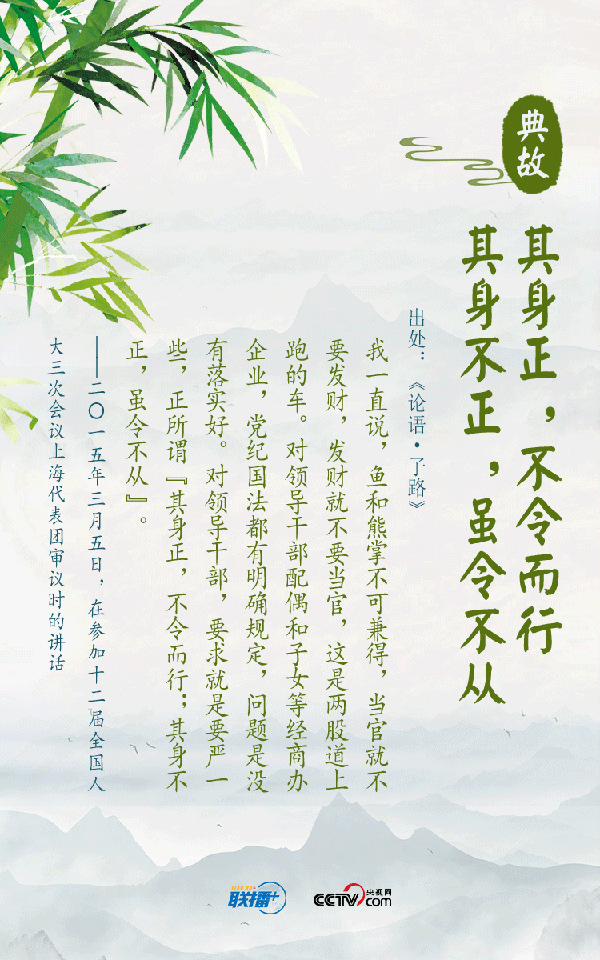 典故
其身正，不令而行
其身不正，虽令不从
出处：《论语·子路》
我一直说，鱼和熊掌不可兼得，当官就不
要发财，发财就不要当官，这是两股道上
跑的车。对领导干部配偶和子女等经商办
企业，党纪国法都有明确规定，问题是没
有落实好。对领导干部，要求就是要严一
些，正所谓『其身正，不令而行；其身不
正，虽令不从』。
——二〇一五年三月五日，在参加十二届全国人
大三次会议上海代表团审议时的讲话
联播+
CCTV 央视网
com